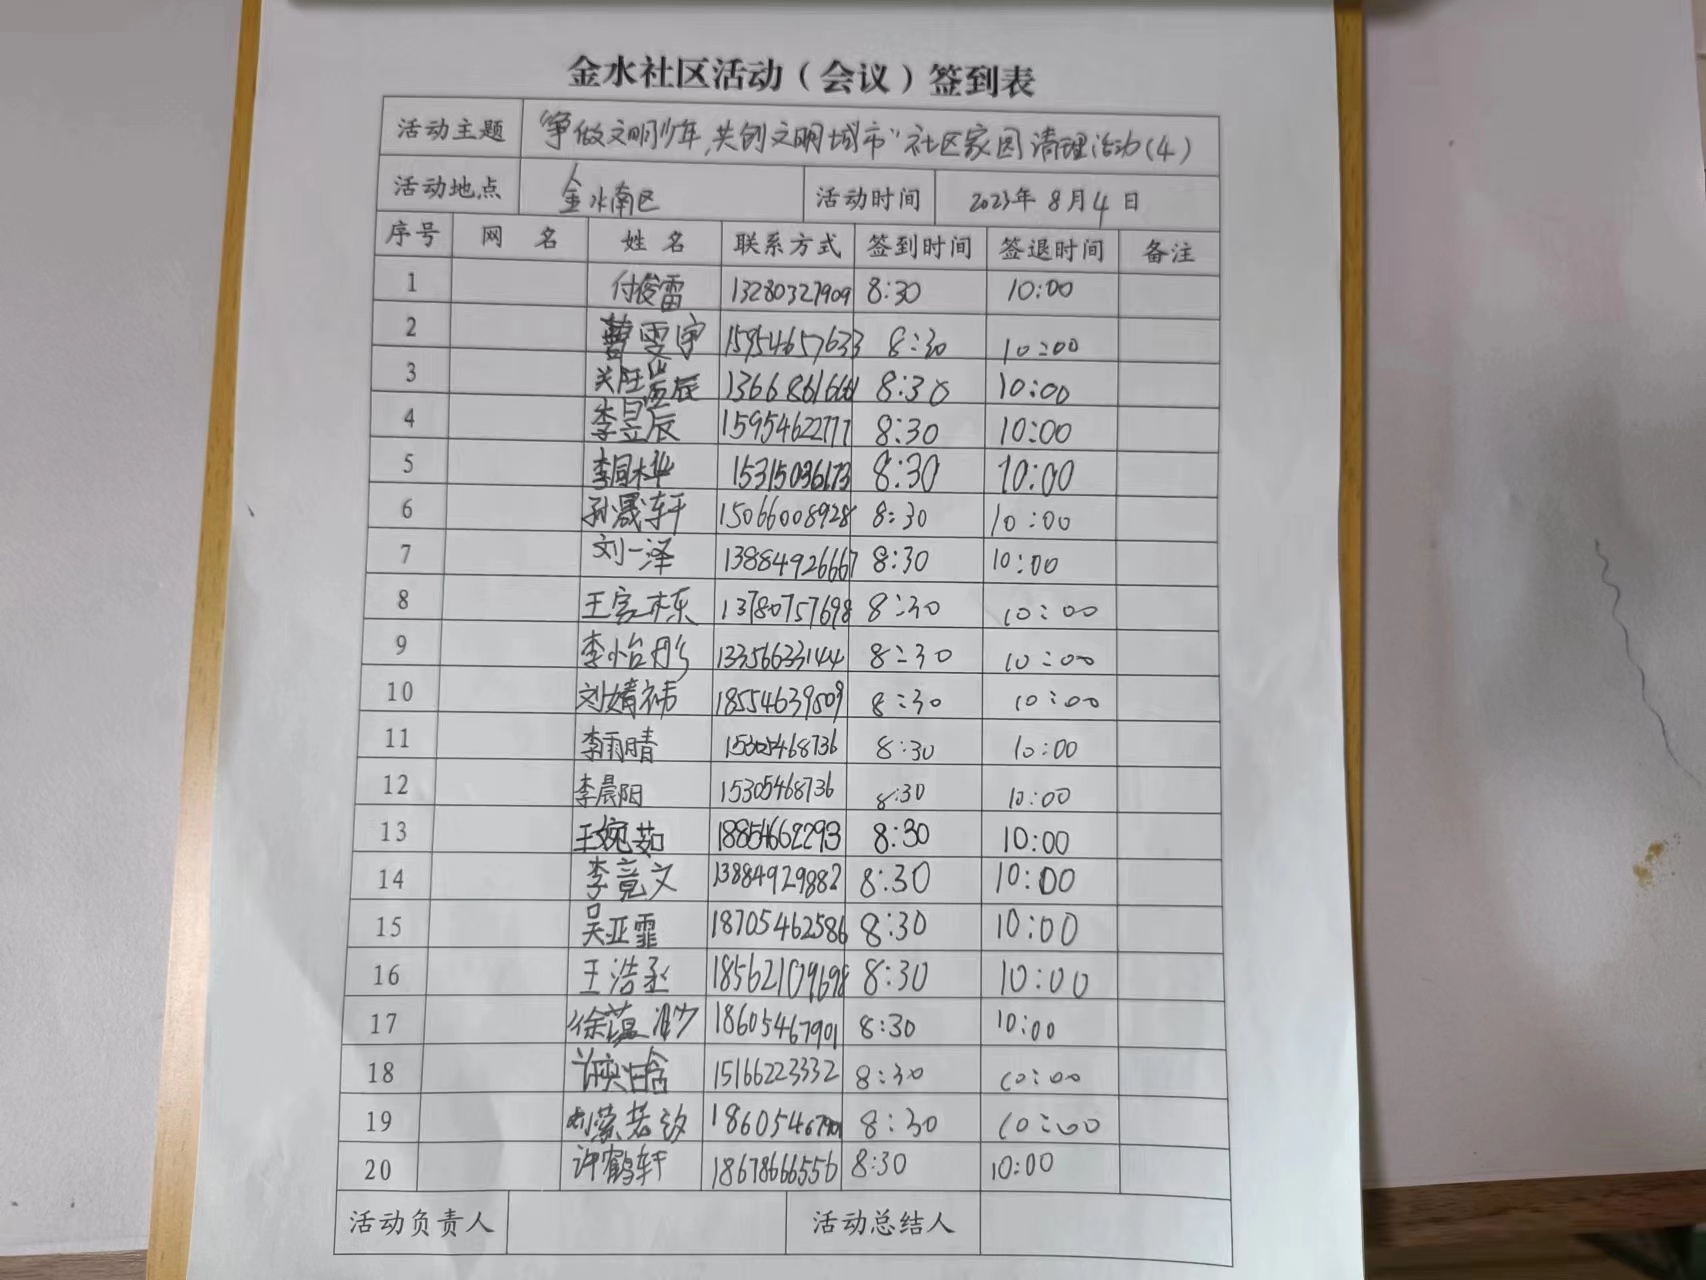 金水社区活动（会议）签到表
活动主题 "争做文明少年,共创文明城市"社区家园清理活动(4)
活动地点 金水南区 活动时间 2023年8月4日
序号 网 名 姓 名 联系方式 签到时间 签退时间 备注
1 付俊雷 13280327909 8:30 10:00
2 曹雯宇 15954657633 8:30 10:00
3 8:30 10:00
4 李昱辰 15954622777 8:30 10:00
5 李同桦 15315036173 8:30 10:00
6 孙晟轩 15066008928 8:30 10:00
7 刘一泽 13884926667 8:30 10:00
8 王宫栋 13780757698 8:30 10:00
9 李怡彤 13356633144 8:30 10:00
10 刘婧祎 18554639809 8:30 10:00
11 李雨晴 15305468736 8:30 10:00
12 李晨阳 15305468736 8:30 10:00
13 王婉茹 18854662293 8:30 10:00
14 李竟文 13884929882 8:30 10:00
15 吴亚霏 18705462586 8:30 10:00
16 王浩丞 18562109698 8:30 10:00
17 徐蕴 18605467901 8:30 10:00
18 15166223332 8:30 10:00
19 刘蒙若汐 18605467901 8:30 10:00
20 许鹤轩 18678666556 8:30 10:00
活动负责人 活动总结人